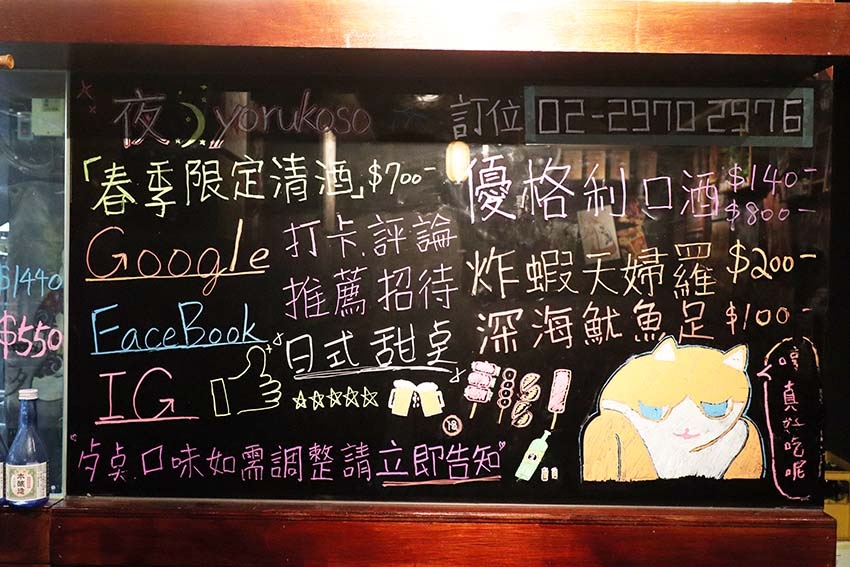 夜 yorukoso 訂位 02-2970 2976
「春季限定清酒」$700-
優格利口酒 $140-
$800-
Google 打卡.評論
推薦招待
炸蝦天婦羅 $200-
FaceBook
日式甜点
深海魷魚足 $100-
IG
"歺点.口味如需調整請立即告知"
真好吃呢
$1440
$550
本醸造